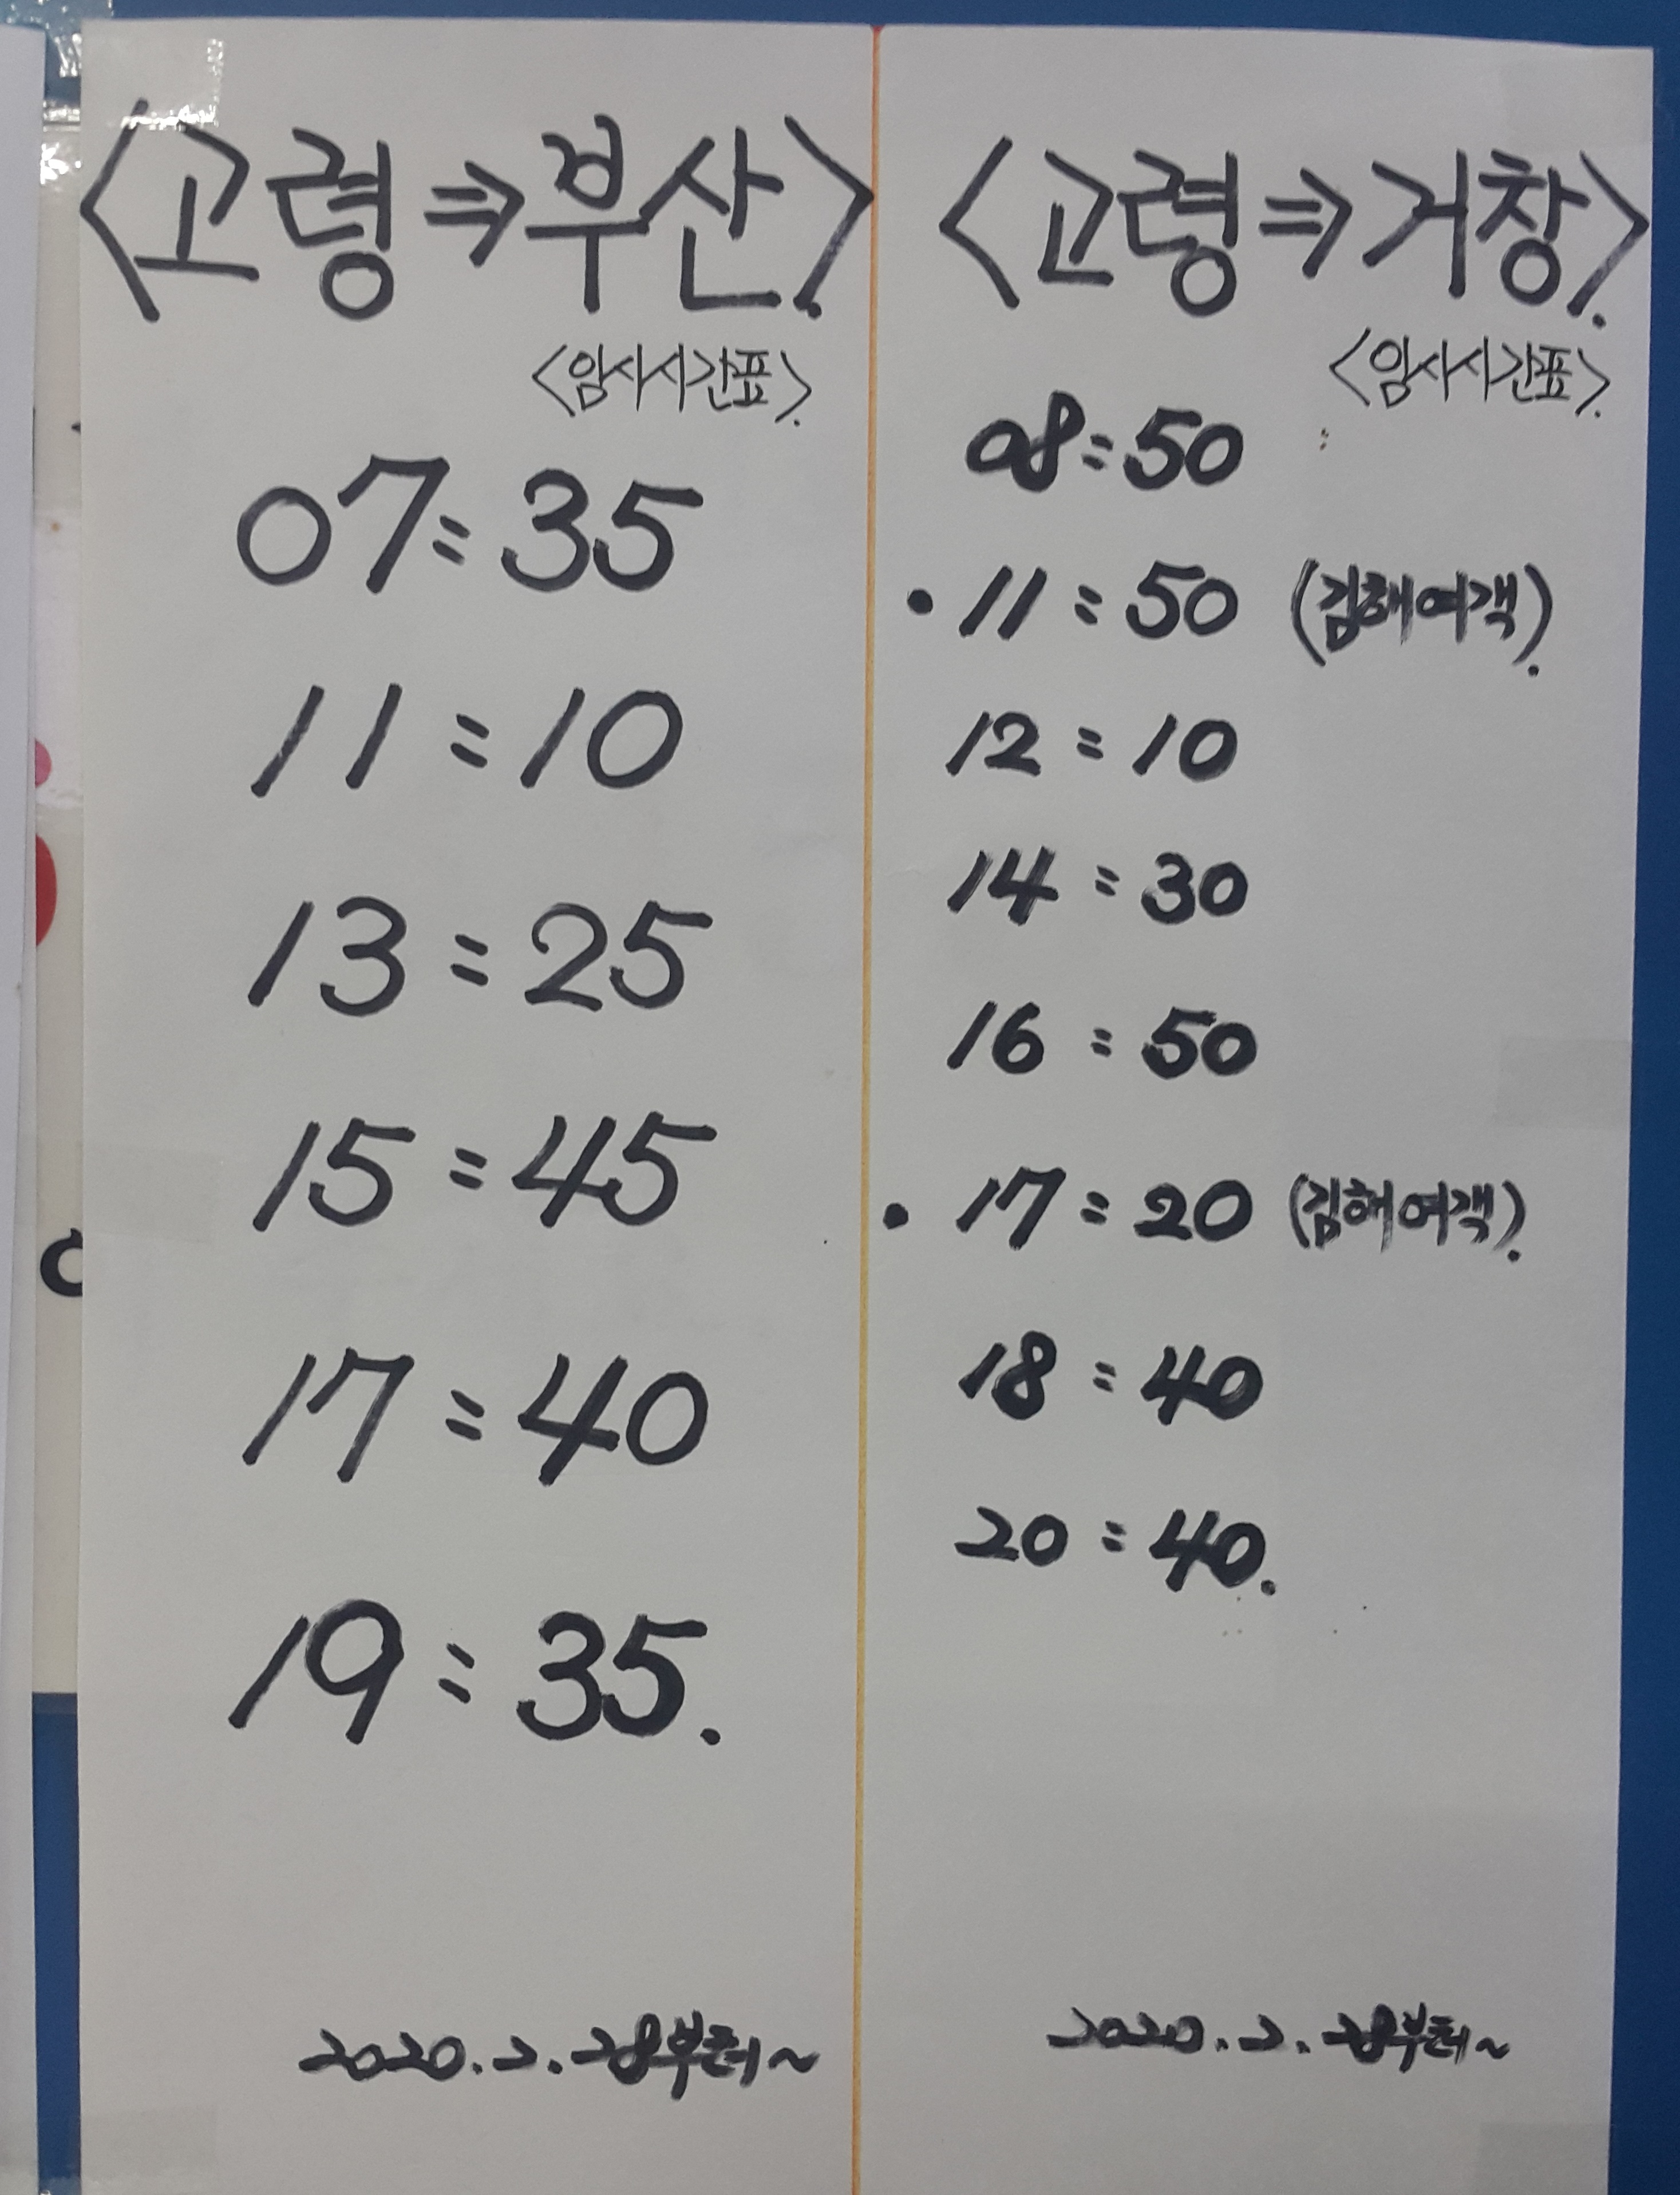 <고령⇒부산>.
<임시시간표>.
07:35
11:10
13:25
15:45
17:40
19:35.
2020.2.28부터~
<고령⇒거창>.
<임시시간표>.
08:50
• 11:50 (김해여객).
12:10
14:30
16:50
• 17:20 (김해여객).
18:40
20:40.
2020.2.28부터~